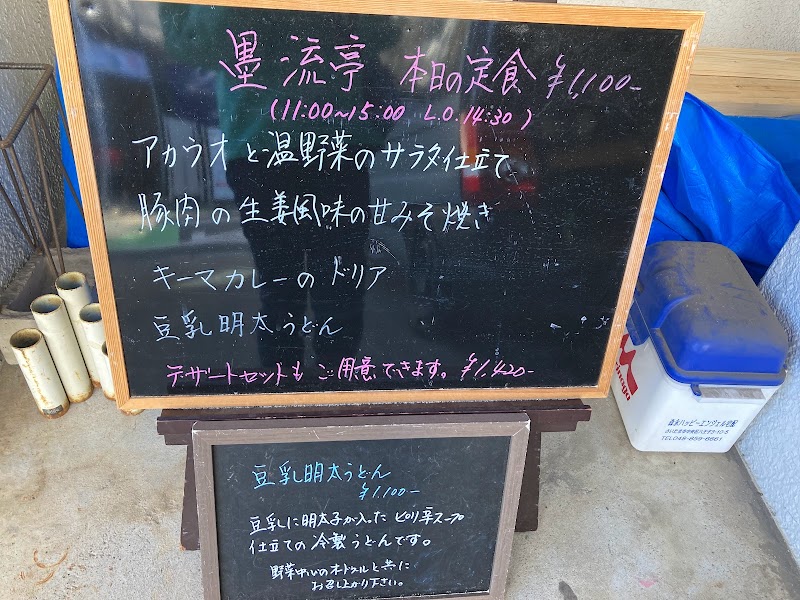 墨流亭 本日の定食 ¥1,100-
(11:00~15:00 L.O.14:30)
アカウオと温野菜のサラダ仕立て
豚肉の生姜風味の甘みそ焼き
キーマカレーのドリア
豆乳明太うどん
デザートセットもご用意できます。¥1,420-
豆乳明太うどん
¥1,100-
豆乳に明太子が入ったピリ辛スープ
仕立ての冷製うどんです。
野菜中心のオードブルと共に
お召し上がり下さい。
森永ハッピーエンゼル宅配